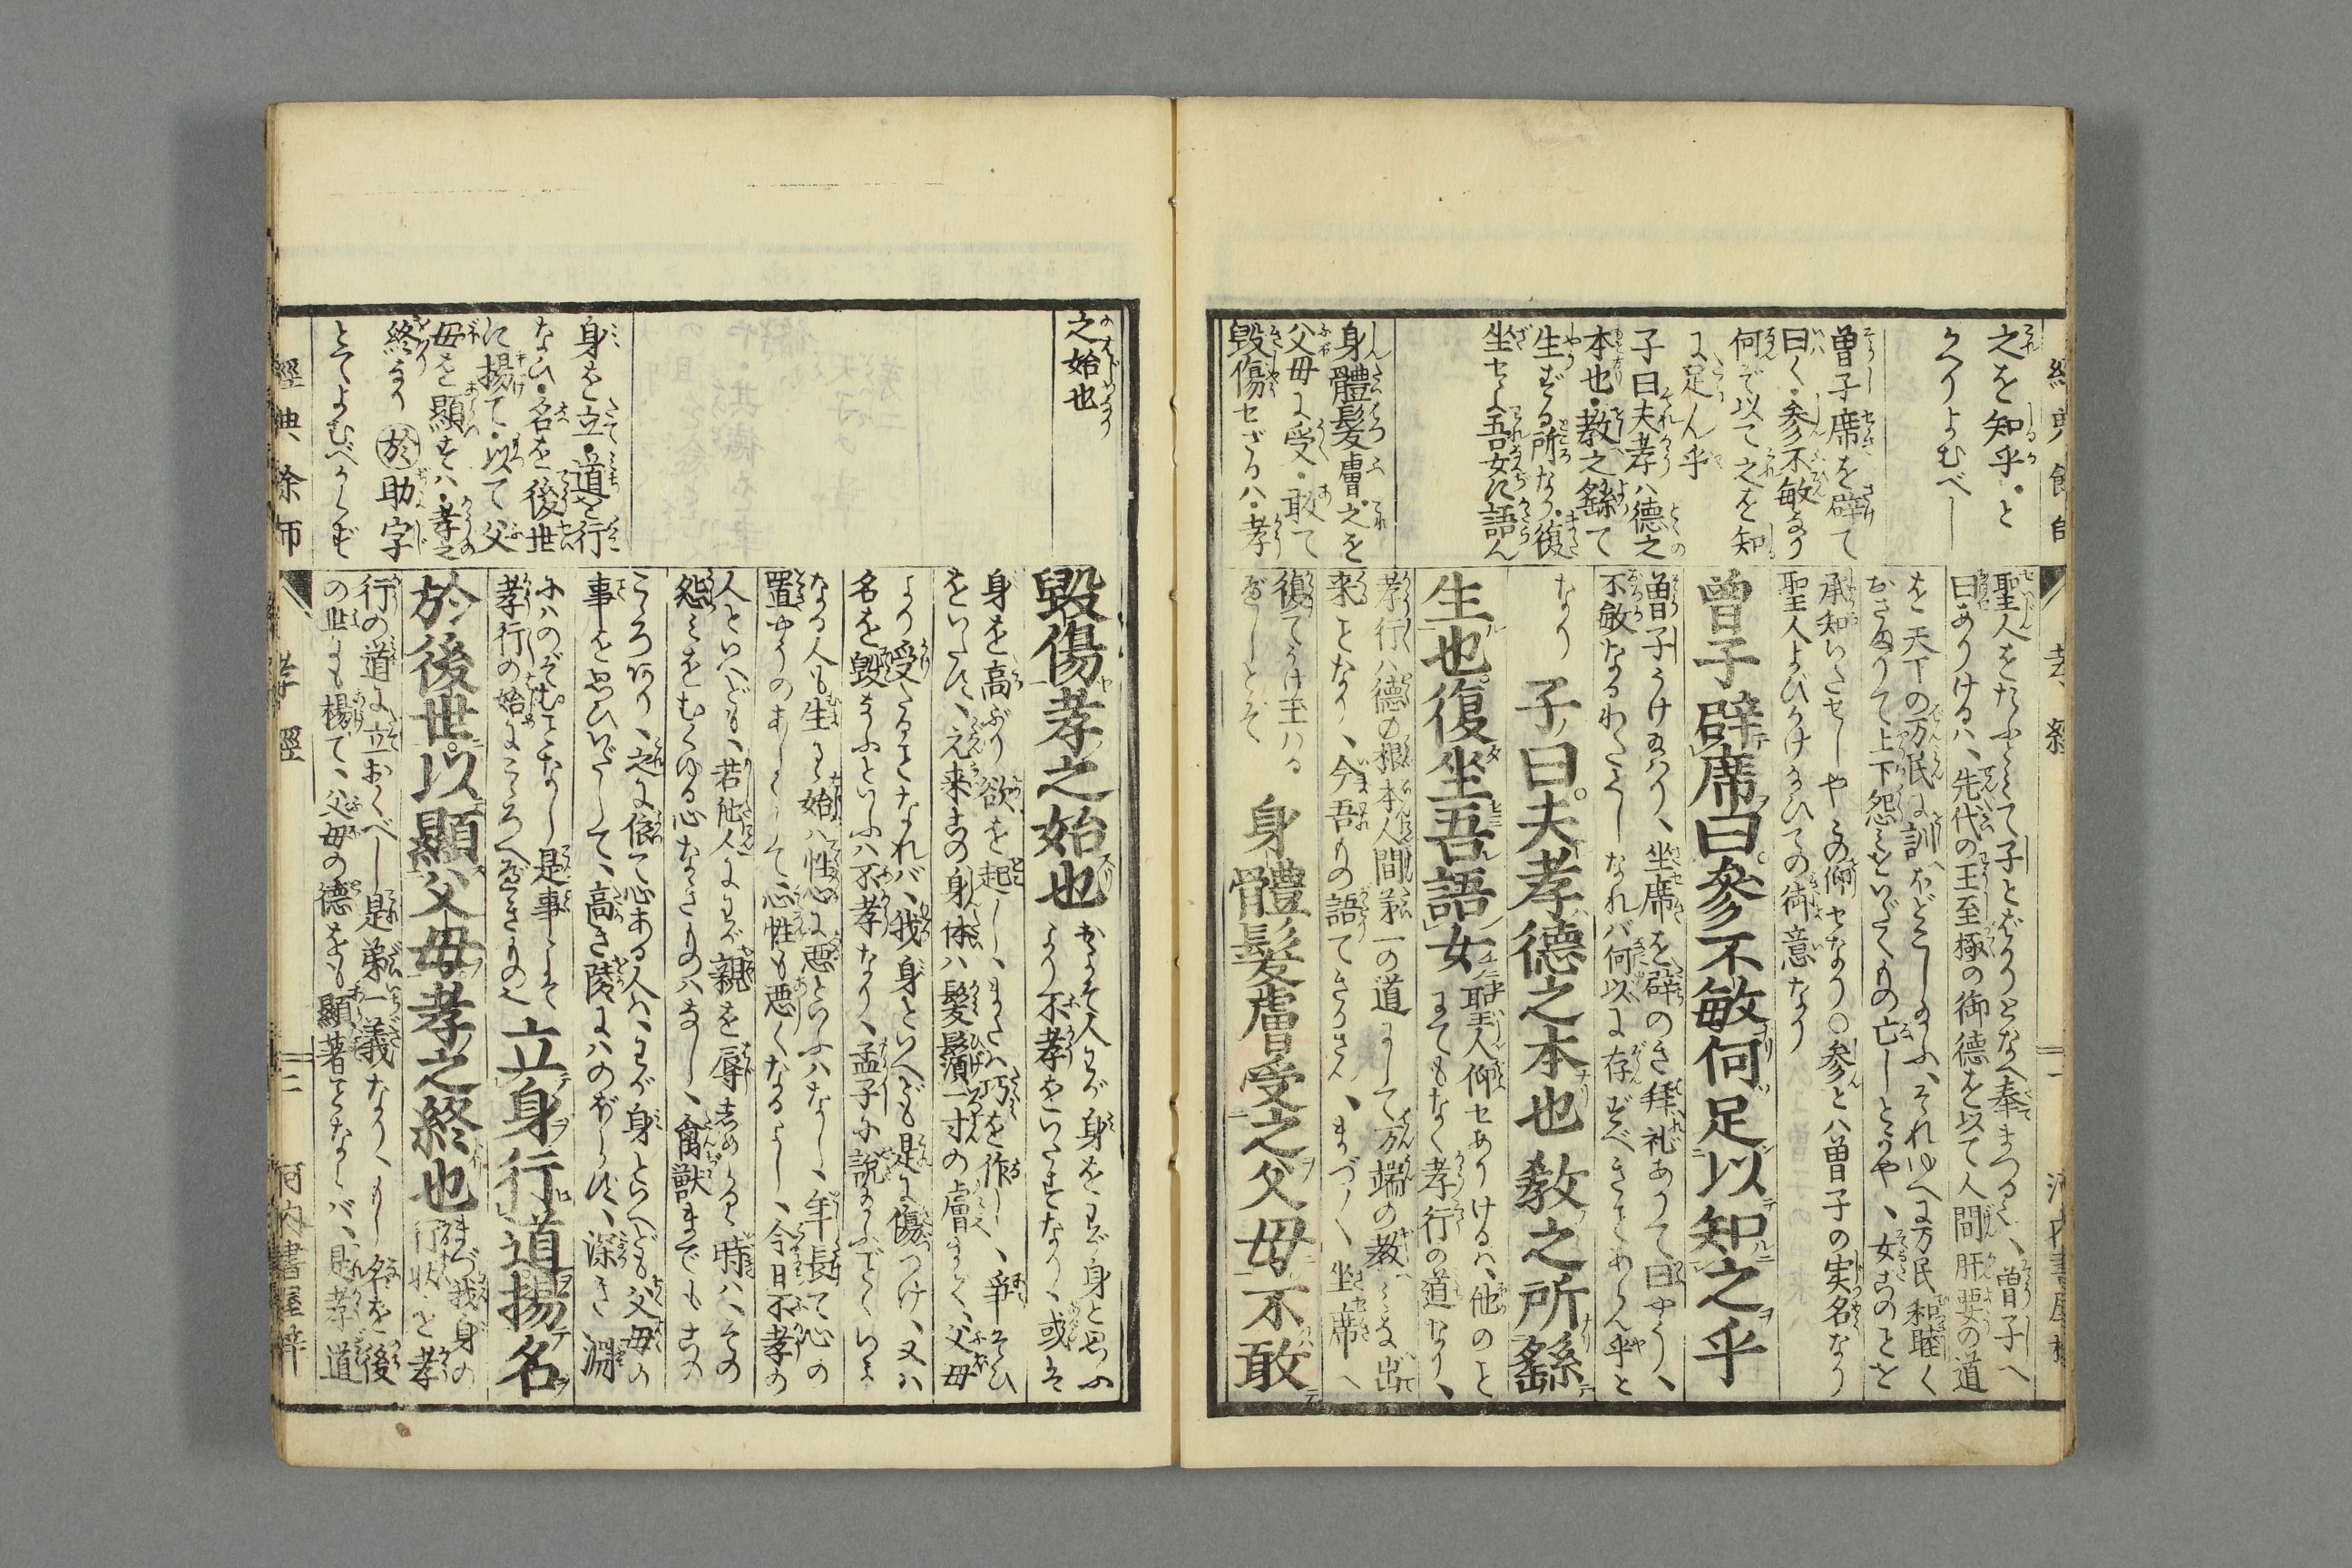 之を知乎・と
かへりよむべし
曽子席を辟て
曰く・参不敏なり
何ぞ以て之を知
に足ん乎
子曰夫孝ハ德之
本也・教之繇て
生ずる所なり・復
坐せよ吾女に語ん
身體髮膚・之を
父母に受・敢て
毀傷せざるハ・孝
聖人をたふとみて子とばかりとなへ奉まつる也、曽子へ
曰ありけるハ、先代の王至極の御德を以て人間肝要の道
を天下の万民に訓へほどこし給ふ、それゆへに万民和睦く
おさまりて上下怨みをいだくもの亡しとかや、女このことを
承知いたせしやとの仰せなり○参とハ曽子の実名なり
聖人よびかけ給ひての御意なり
曽子辟席曰參不敏何足以知之乎
曽子うけ玉ハり、坐席を辟のき拝礼ありて曰やう、
不敏なるわたくしなれバ何以に存ずべきことあらん乎と
なり
子曰夫孝德之本也教之所繇
生也復坐吾語女
聖人仰せありけるハ、他のこと
にてもなく孝行の道なり、
孝行ハ德の根本人間第一の道にして万端の教こゝに出
来ことなり、今吾もの語てきかさん、まづ〱坐席へ
復てうけ玉ハる
べしとぞ
身體髮膚受之父母不敢
之始也
身を立・道を行
なひ・名を後世
に揚て・以て父
母を顯すハ・孝之
終なり㊀於助字
とてよむべからず
毀傷孝之始也
およそ人わが身をわが身と思ふ
より不孝をいたすなり、或は
身を高ぶり欲を起し、または巧を作し、争そひ
をいたす、元来この身体ハ髪鬚一寸の膚まで、父母
より受たることなれバ、我身といへども是に傷つけ、又ハ
名を毀なふといふハ不孝なり、孟子に説給ふごとくいか
なる人も生れ始ハ性心に悪といふハなし、年長て心の
置やうのあしくして心性も悪くなるよし、今日不孝の
人といへども、若他人にわが親を辱しめらるゝ時ハ、その
怨みをむくゆる心なきものハなし、禽獣までもこの
こゝろあり、之に依て心ある人ハ、わが身といへども父母の
事を思ひいだして、高き陵にハのぼらず、深き淵
にハのぞむことなし是事こそ
孝行の始とこゝろへべきもの也
立身行道揚名
於後世以顯父母孝之終也
まづ我身の
行状を孝
行の道に立おくべし是第一義なり、もし名を後
の世にも揚て、父母の德をも顯著ことならバ、是孝道
經典余師
孝經
二
河内書屋梓